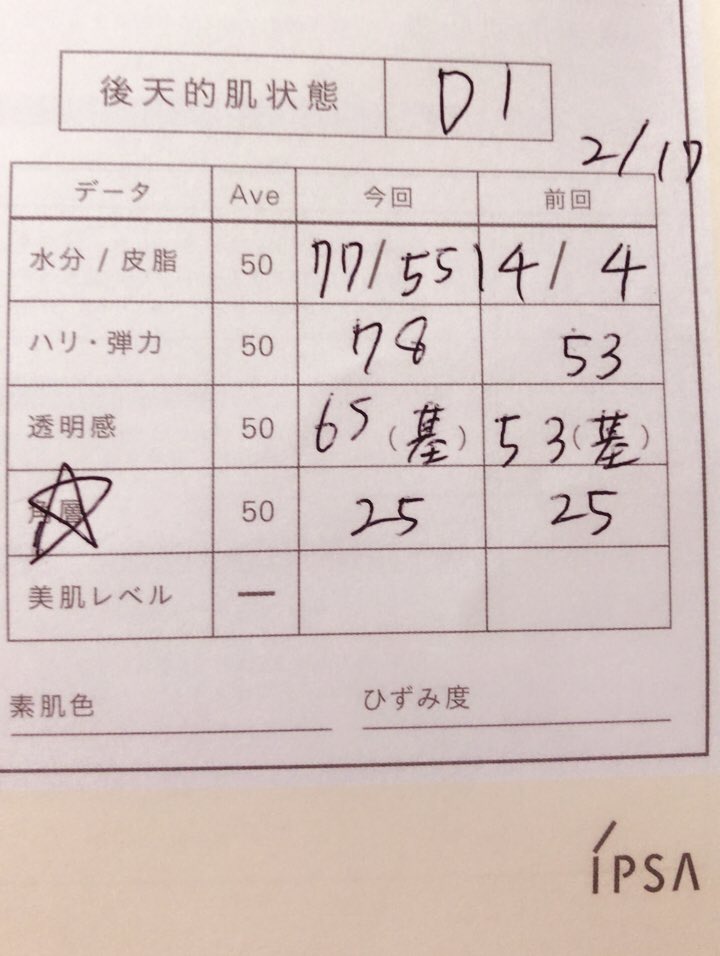 後天的肌状態 D1
2/17
データ Ave 今回 前回
水分 / 皮脂 50 77/55 14/4
ハリ・弾力 50 78 53
透明感 50 65(基) 53(基)
角層 50 25 25
美肌レベル —
素肌色 ひずみ度
IPSA